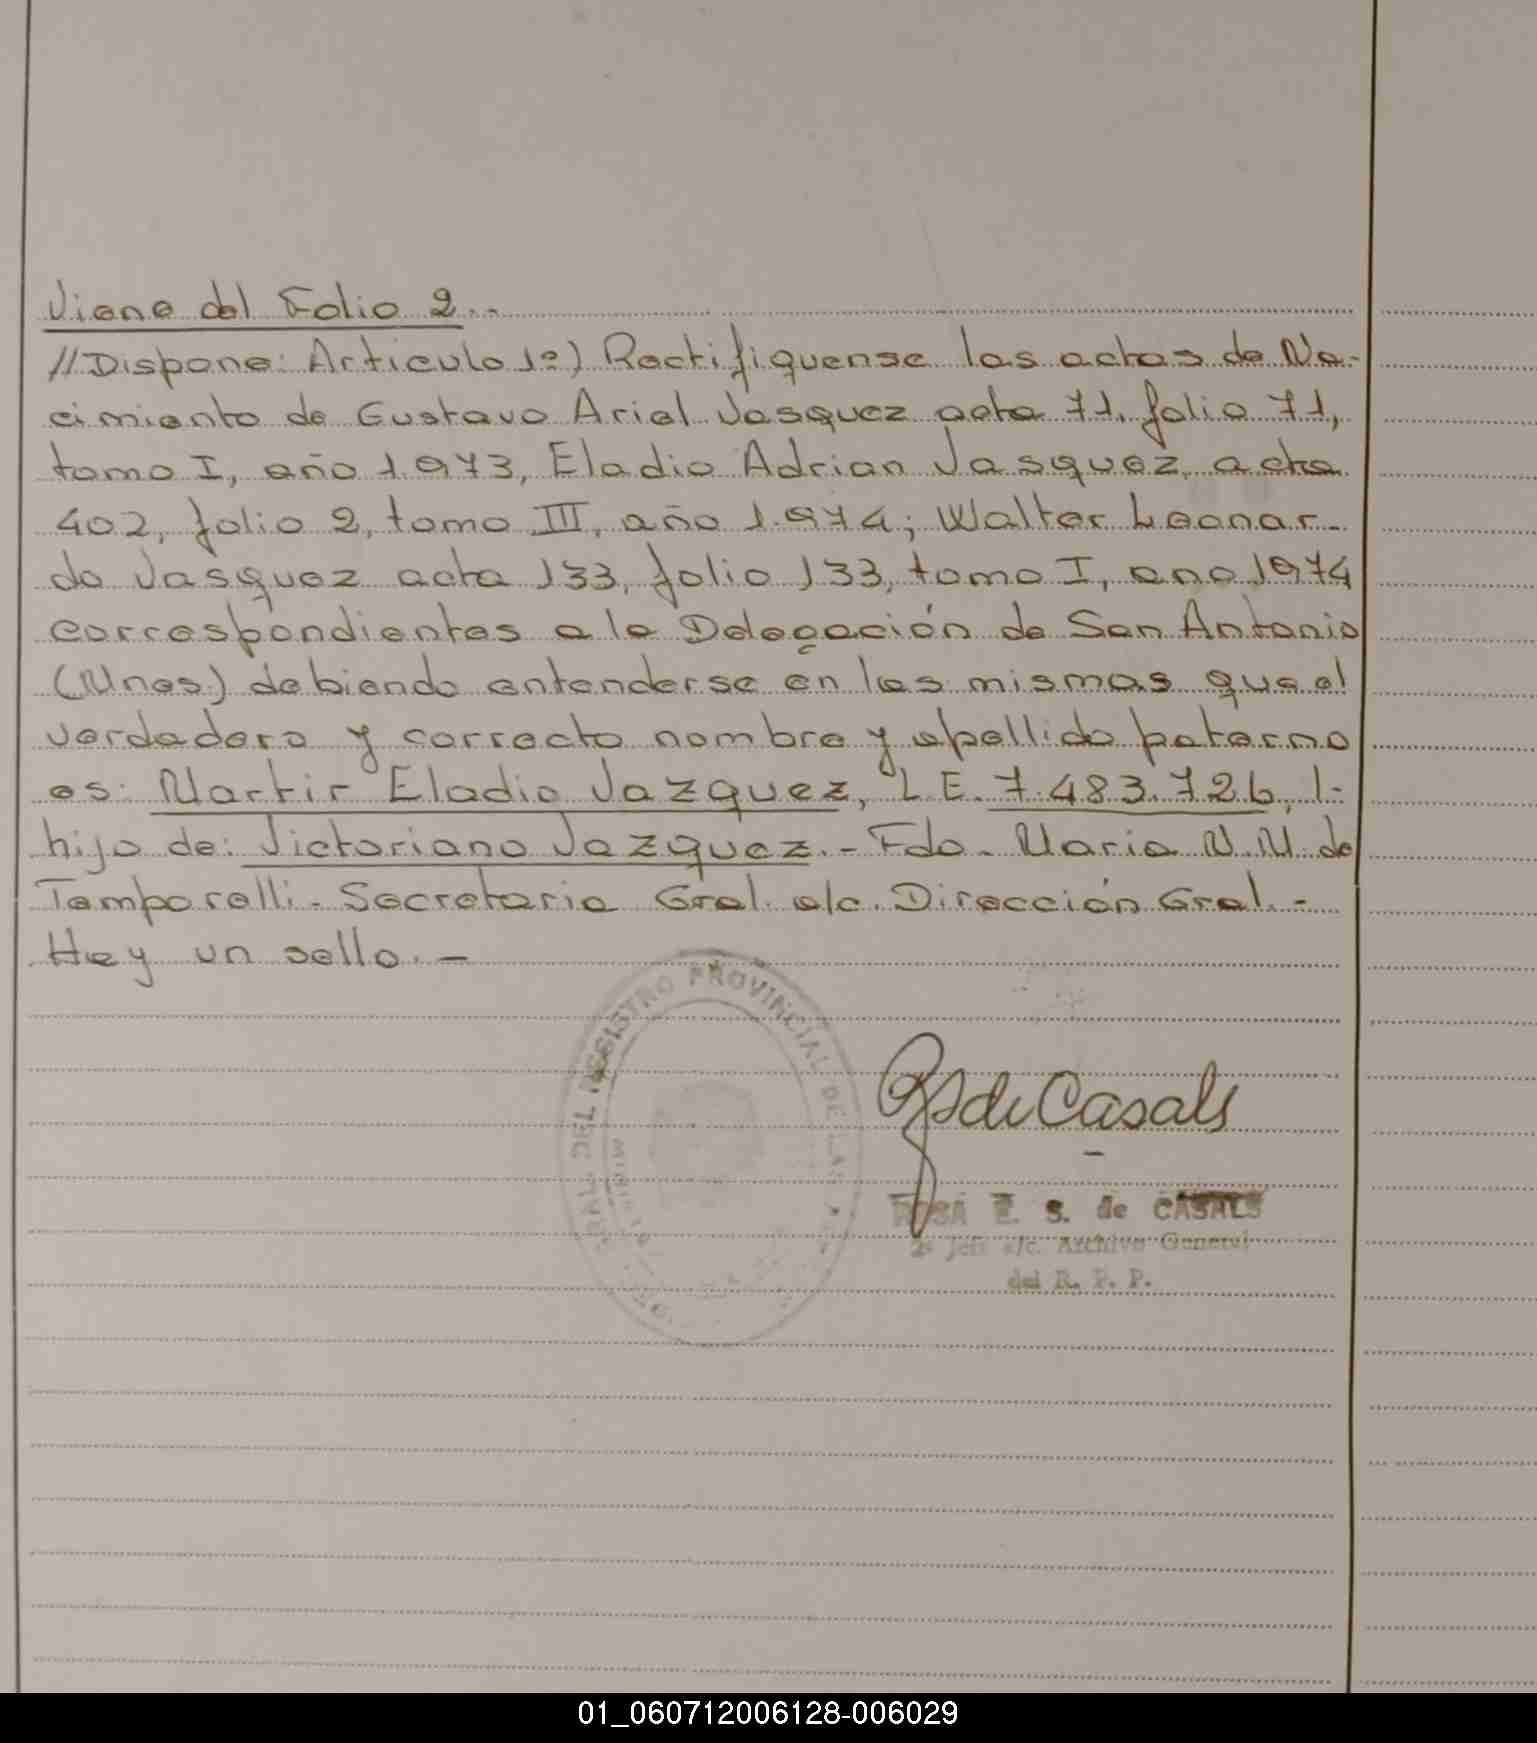 Viene del Folio 2.-
//Dispone: Articulo 1º) Rectifiquense las actas de Na-
cimiento de Gustavo Ariel Vasquez acta 71, folio 71,
tomo I, año 1.973, Eladio Adrian Vasquez, acta
402, folio 2, tomo III, año 1.974; Walter Leonar-
do Vasquez acta 133, folio 133, tomo I, ano 1974
correspondientes a la Delegación de San Antonio
debiendo entenderse en las mismas que el
verdadero y correcto nombre y apellido paterno
es: Martir Eladio Vazquez, L E. 7.483.726,
hijo de: Victoriano Vazquez.- Fdo. Maria N. M. de
Temporelli.- Secretaria Gral. a/c. Dirección Gral.-
Hay un sello.-
DEL REGISTRO PROVINCIAL DE LAS
RS de Casals
ROSA E. S. de CASALS
2º Jefe a/c. Archivo General
del R. P. P.
01_060712006128-006029